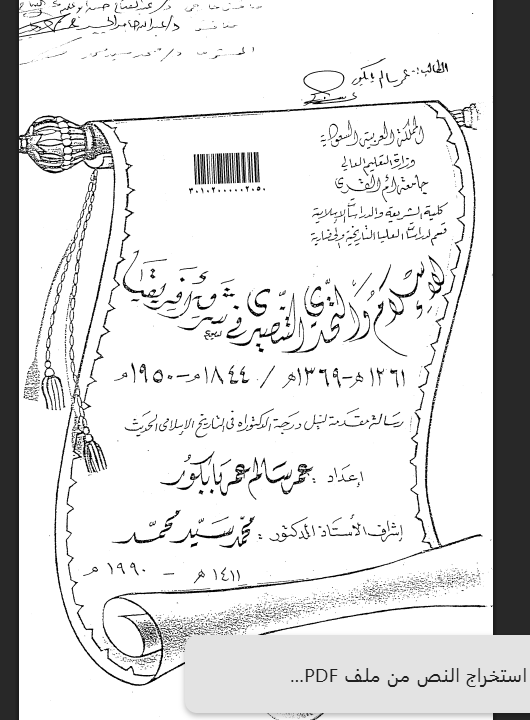 الطالب:- عمر سالم بابكور
المملكة العربية السعودية
وزارة التعليم العالي
جامعة أم القرى
كلية الشريعة والدراسات الإسلامية
قسم الدراسات العليا التاريخية والحضارية
٣٠١٠٢٠٠٠٠٠٢٠٥٠
الإسلام والتحدي التنصيري في شرق أفريقيا
١٢٦١ هـ - ١٣٦٩ هـ / ١٨٤٤ م - ١٩٥٠ م
رسالة مقدمة لنيل درجة الدكتوراه في التاريخ الإسلامي الحديث
إعداد : عمر سالم عمر بابكور
إشراف الأستاذ الدكتور : محمد سيد محمد
١٤١١ هـ - ١٩٩٠ م
استخراج النص من ملف PDF...